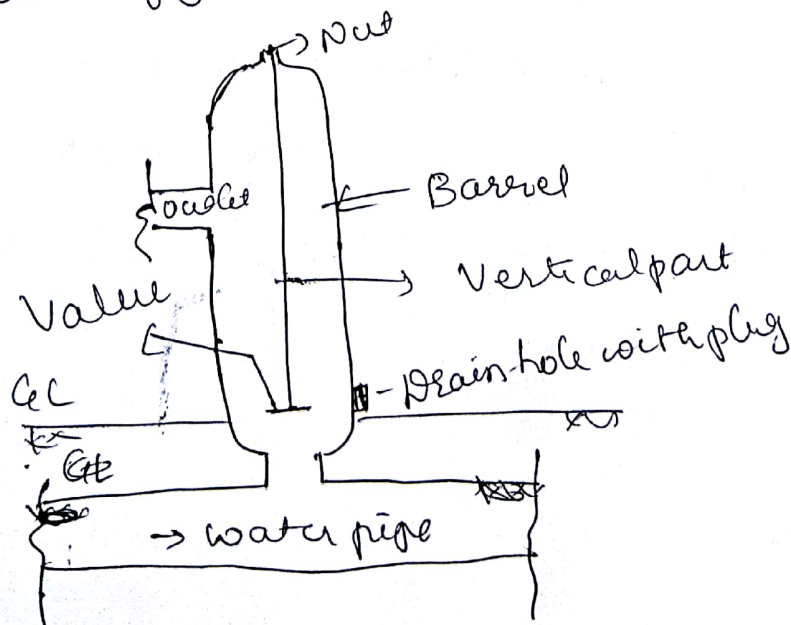 Nut
outlet
Barrel
Vertical part
Value
Drain-hole with plug
GL
→ water pipe